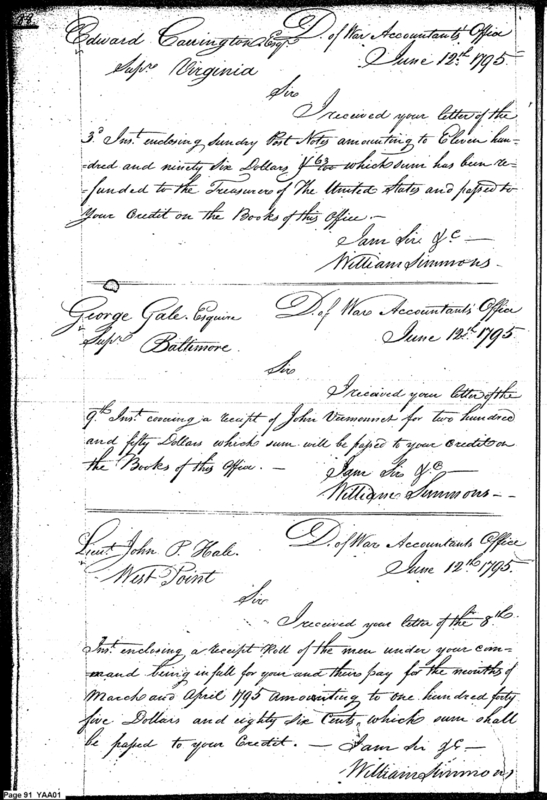 Edward Carrington Esqr. D. of War Accountants' Office
Supr. Virginia June 12th. 1795
Sir
I received your letter of the
3d. Inst. enclosing sundry Post Notes amounting to Eleven hun-
dred and ninety six Dollars & 63/100 which sum has been re-
funded to the Treasurer of The United States and passed to
Your Credit on the Books of this Office.—
I am Sir &c—
William Simmons—
George Gale. Esquire D. of War Accountants' Office
Supr. Baltimore June 12th. 1795.
Sir
I received your letter of the
9th. Inst. covering a receipt of John Vermonnet for two hundred
and fifty Dollars which sum will be passed to your Credit on
the Books of this Office.— I am Sir &c—
William Simmons—
Lieut. John P. Hale. D. of War Accountants Office
West Point June 12th 1795.
Sir
I received your letter of the 8th.
Inst. enclosing a receipt Roll of the men under your com-
mand being in full for your and theirs pay for the months of
March and April 1795 amounting to one hundred forty
five Dollars and eighty six Cents, which sum shall
be passed to your Credit.— I am Sir &c—
William Simmons
Page 91 YAA01